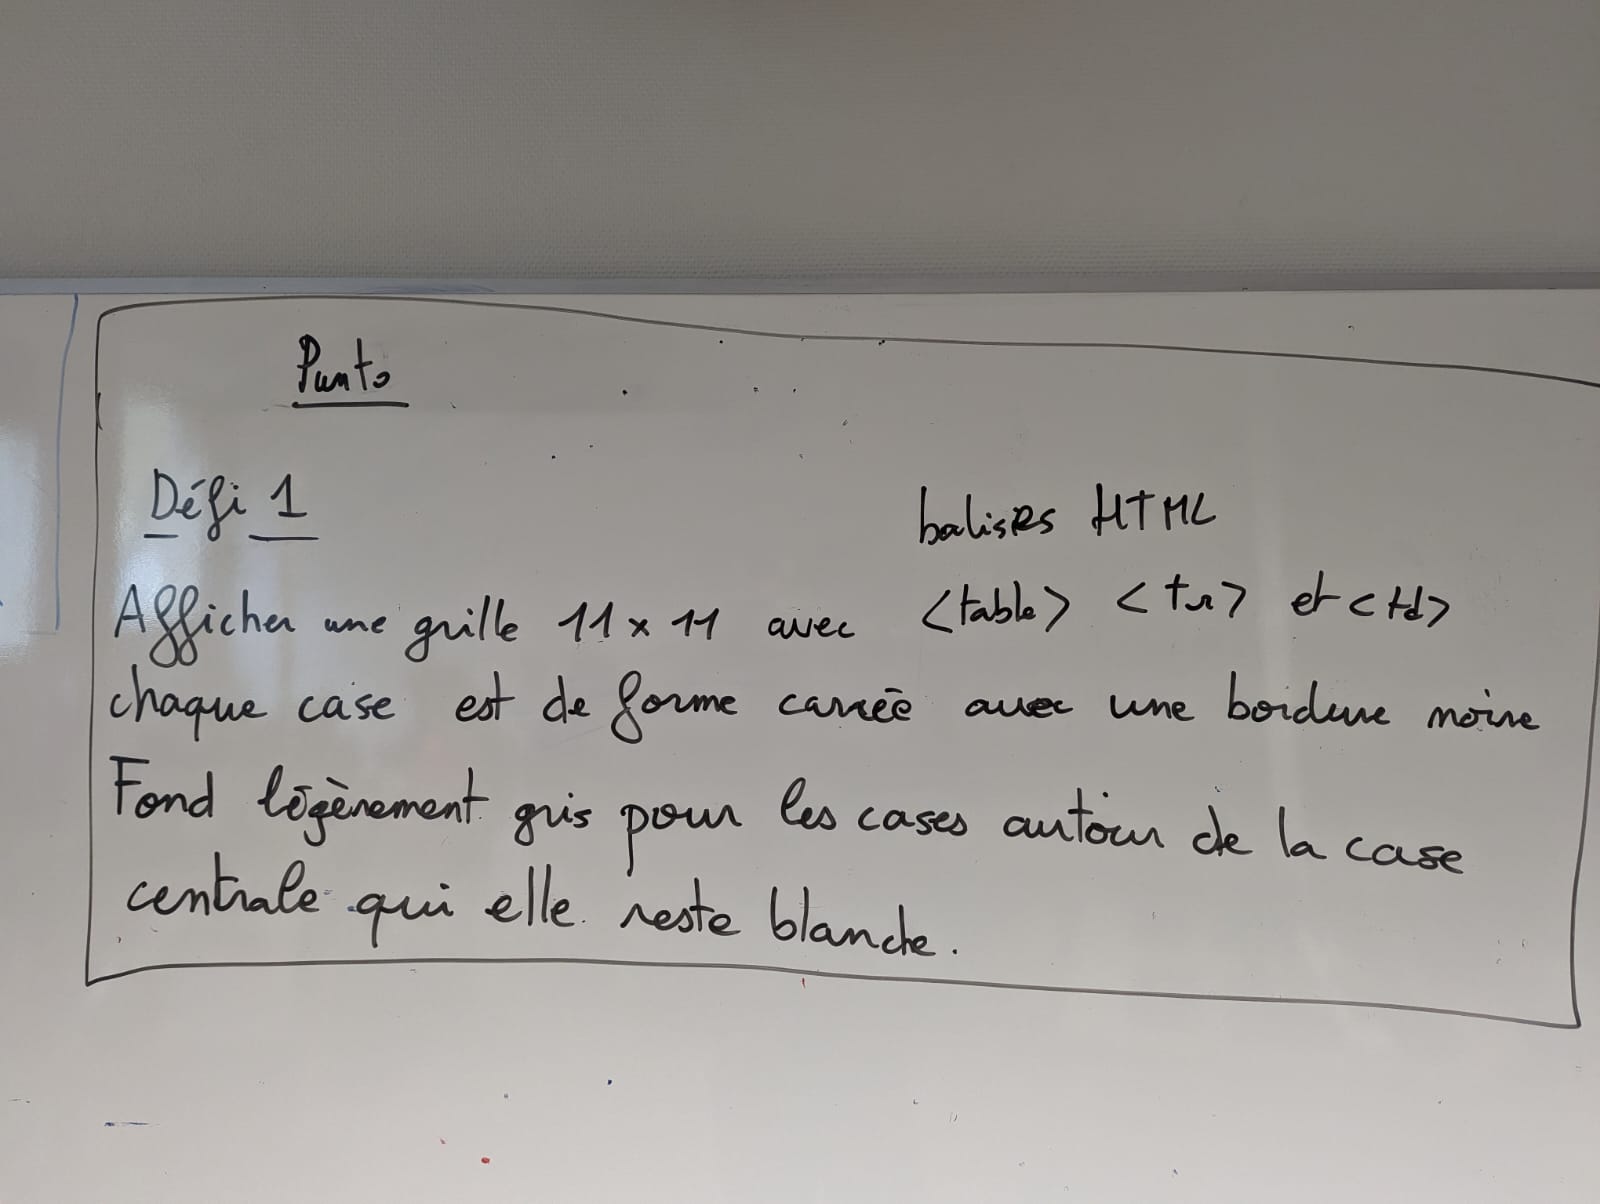 Punto
Défi 1
balises HTML
Afficher une grille 11 x 11 avec <table> <tr> et <td>
chaque case est de forme carrée avec une bordure noire
Fond légèrement gris pour les cases autour de la case
centrale qui elle reste blanche.